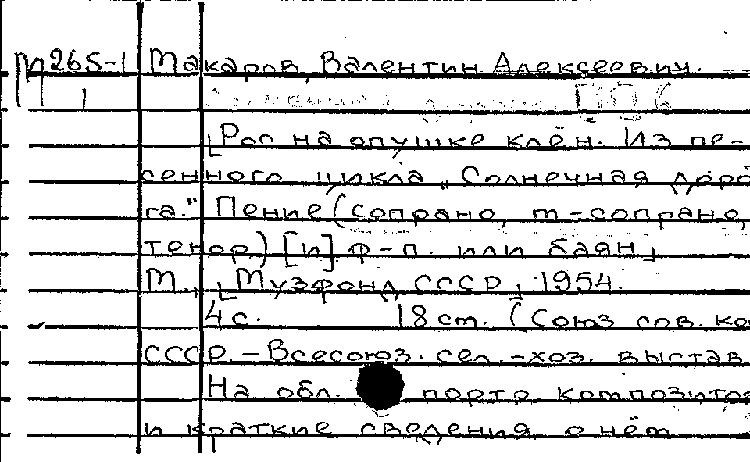 М265-1 Макаров, Валентин Алексеевич.
1
[Рос на опушке клён. Из пе-
сенного цикла „Солнечная доро
га." Пение (сопрано, m-сопрано,
тенор) [и] ф-п. или баян]
М., [Музфонд СССР], 1954.
4с. 18 cm. (Союз сов. ко
СССР.-Всесоюз. сел.-хоз. выстав
На обл. портр. композито
и краткие сведения о нём